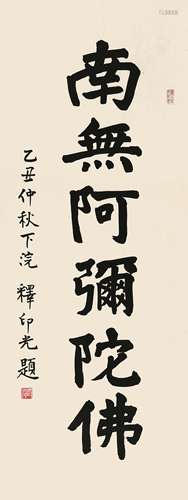 南無阿彌陀佛
乙丑仲秋下浣 釋印光題